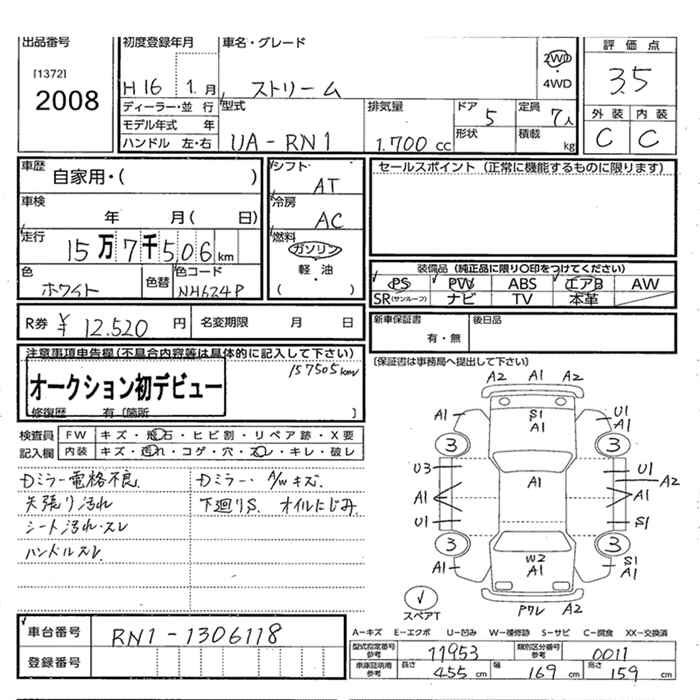 出品番号
[1372]
2008
初度登録年月
H16 1.月
車名・グレード
ストリーム
2WD
・
4WD
評価点
3.5
外装 内装
C C
ディーラー・並行
モデル年式 年
ハンドル 左・右
型式
UA-RN1
排気量
1.700 cc
ドア 5
形状
定員 7人
積載 kg
車歴
自家用・( )
シフト
AT
セールスポイント (正常に機能するものに限ります)
車検
年 月( 日)
冷房
AC
走行
15万7千506km
燃料
ガソリン
軽・油
( )
色
ホワイト
色替
色コード
NH624P
装備品 (純正品に限り〇印をつけてください)
PS PW ABS エアB AW
SR(サンルーフ) ナビ TV 本革
R券 ¥12.520 円
名変期限 月 日
新車保証書
有・無
後日品
(保証書は事務局へ提出して下さい)
注意事項申告欄(不具合内容等は具体的に記入して下さい)
157505km
オークション初デビュー
修復歴 有〔箇所 〕
検査員
記入欄
FW キズ・飛石・ヒビ割・リペア跡・X要
内装 キズ・汚れ・コゲ・穴・スレ・キレ・破レ
Dミラー電格不良
天張り汚れ
シート汚れ・スレ
ハンドルスレ
Dミラー・A/wキズ
下廻りS. オイルにじみ
A1
A2 A2
S1
A1
A1 U1
A1
3 3
U3 U1
A1 A2
A1 A1
U1 S1
3 3
W2
A1
A1 S1
A1
スペアT
PワレA2
車台番号
RN1-1306118
登録番号
A-キズ E-エクボ U-凹み W-補修跡 S-サビ C-腐食 XX-交換済
型式指定番号
参考
11953
類別区分番号
参考
0011
車庫証明用
参考
長さ 455 cm
幅 169 cm
高さ 159 cm